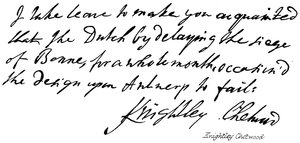 I take leave to make you acquainted
that the Dutch by delaying the siege
of Bonne, for a whole month, occasion'd
the design upon Antwerp to fail:
Knightley Chetwood
Knightley Chetwood